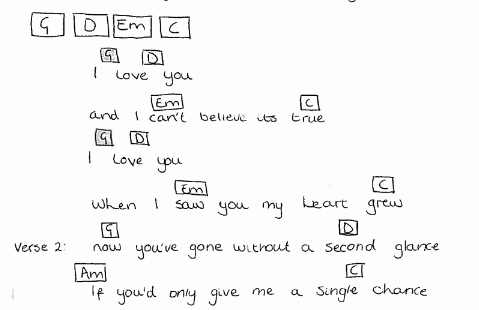 G D Em C
G D
I love you
Em C
and I can't believe its true
G D
I love you
Em C
when I saw you my heart grew
G D
Verse 2: now you've gone without a second glance
Am C
If you'd only give me a single chance